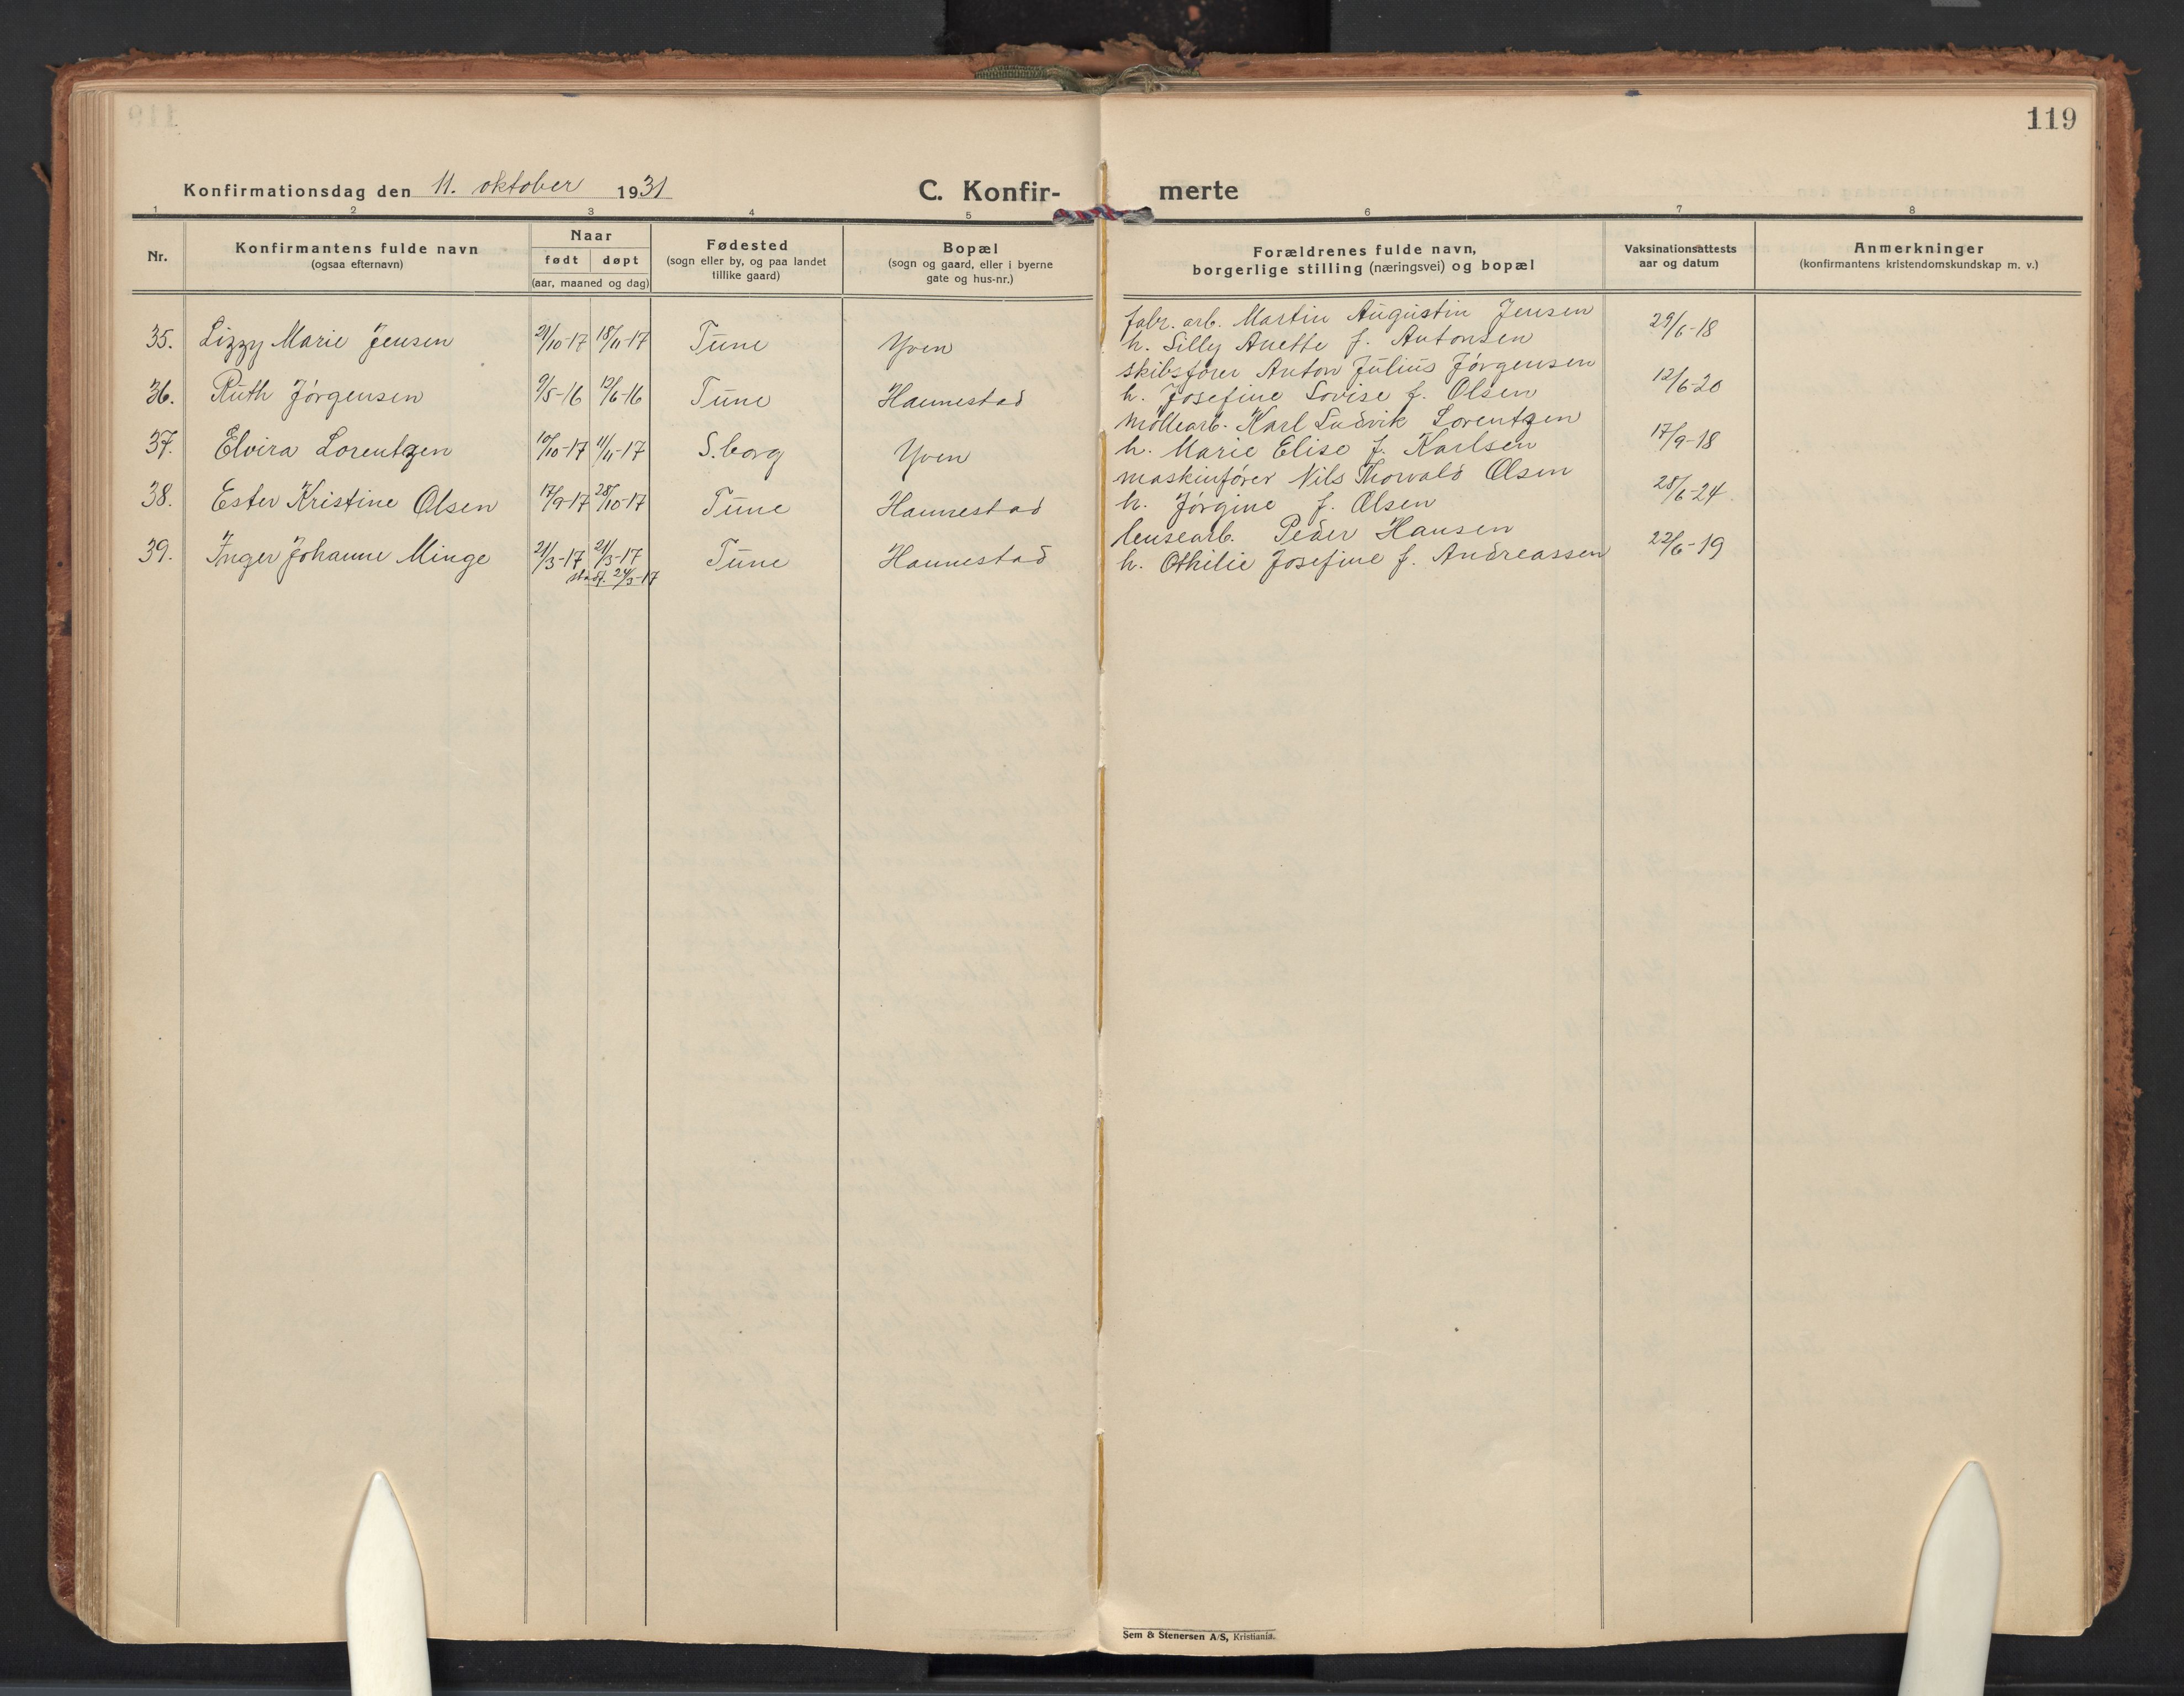 119
Konfirmationsdag den 11. oktober 1931
C. Konfir- merte
1 2 3 4 5 6 7 8
Nr.
Konfirmantens fulde navn
(ogsaa efternavn)
Naar
født døpt
(aar, maaned og dag)
Fødested
(sogn eller by, og paa landet
tillike gaard)
Bopæl
(sogn og gaard, eller i byerne
gate og hus-nr.)
Forældrenes fulde navn,
borgerlige stilling (næringsvei) og bopæl
Vaksinationsattests
aar og datum
Anmerkninger
(konfirmantens kristendomskundskap m. v.)
35. Lizzy Marie Jensen 21/10-17 18/11-17 Tune Yven
fabr. arb. Martin Augustin Jensen
h. Silly Anette f. Antonsen
29/6-18
36. Ruth Jörgensen 9/5-16 12/6-16 Tune Hannestad
skibsförer Anton Julius Jörgensen
h. Josefine Lovise f. Olsen
12/6-20
37. Elvira Lorentzen 10/10-17 11/11-17 S.borg Yven
möllearb. Karl Ludvik Lorentzen
h. Marie Elise f. Karlsen
17/9-18
38. Ester Kristine Olsen 17/9-17 28/10-17 Tune Hannestad
maskinförer Nils Thorvald Olsen
h. Jörgine f. Olsen
28/6-24.
39. Inger Johanne Minge 21/3-17 21/3-17 Tune Hannestad
stadf. 24/5-17
lensearb. Peder Hansen
h. Othilie Josefine f. Andreassen
22/6-19
Sem & Stenersen A/S, Kristiania.